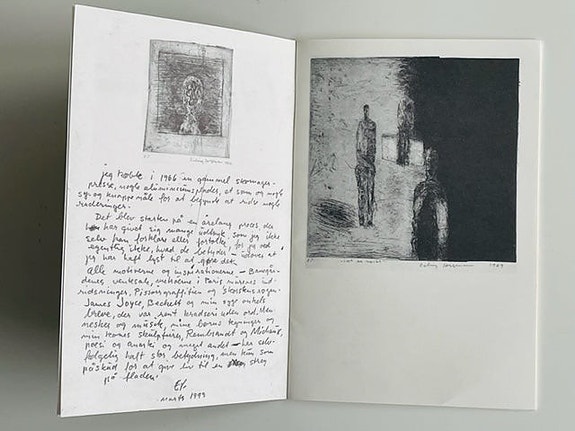 jeg købte i 1966 en gammel skomager-
presse, nogle aluminiumsplader, et som og nogle
sy- og knappenåle for at begynde at ridse nogle
raderinger.
Det blev starten på en årelang proces der
har givet sig mange udtryk som jeg ikke
selv kan forklare eller fortolke, for jeg ved
egentlig ikke, hvad de betyder – udover at
jeg har haft lyst til at gøre det.
Alle motiverne og inspirationerne – Banegår-
denes ventesale, metroen i Paris, murenes ind-
ridsninger, Pissoirgraffitien og skorstensrøgen
James Joyce, Beckett og min syge onkels
breve, der var rent kradseri uden ord, Men-
nesker og musik, mine børns tegninger og
min kones skulpturer, Rembrandt og Michaux,
poesi og anarki og meget andet – har selv-
følgelig haft stor betydning, men kun som
påskud for at give liv til en streg
på fladen.
marts 1999
1969